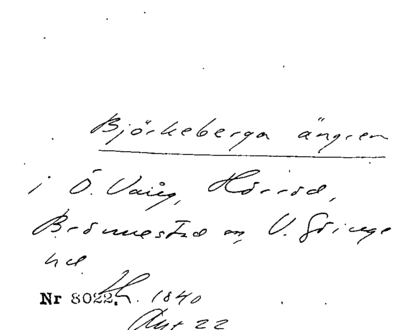 Björkeberga ängen
i Ö. Vång, Hörröd,
Brönnestad sn, V. Göinge
hd.
Nr 8022. 1840
Aug 22